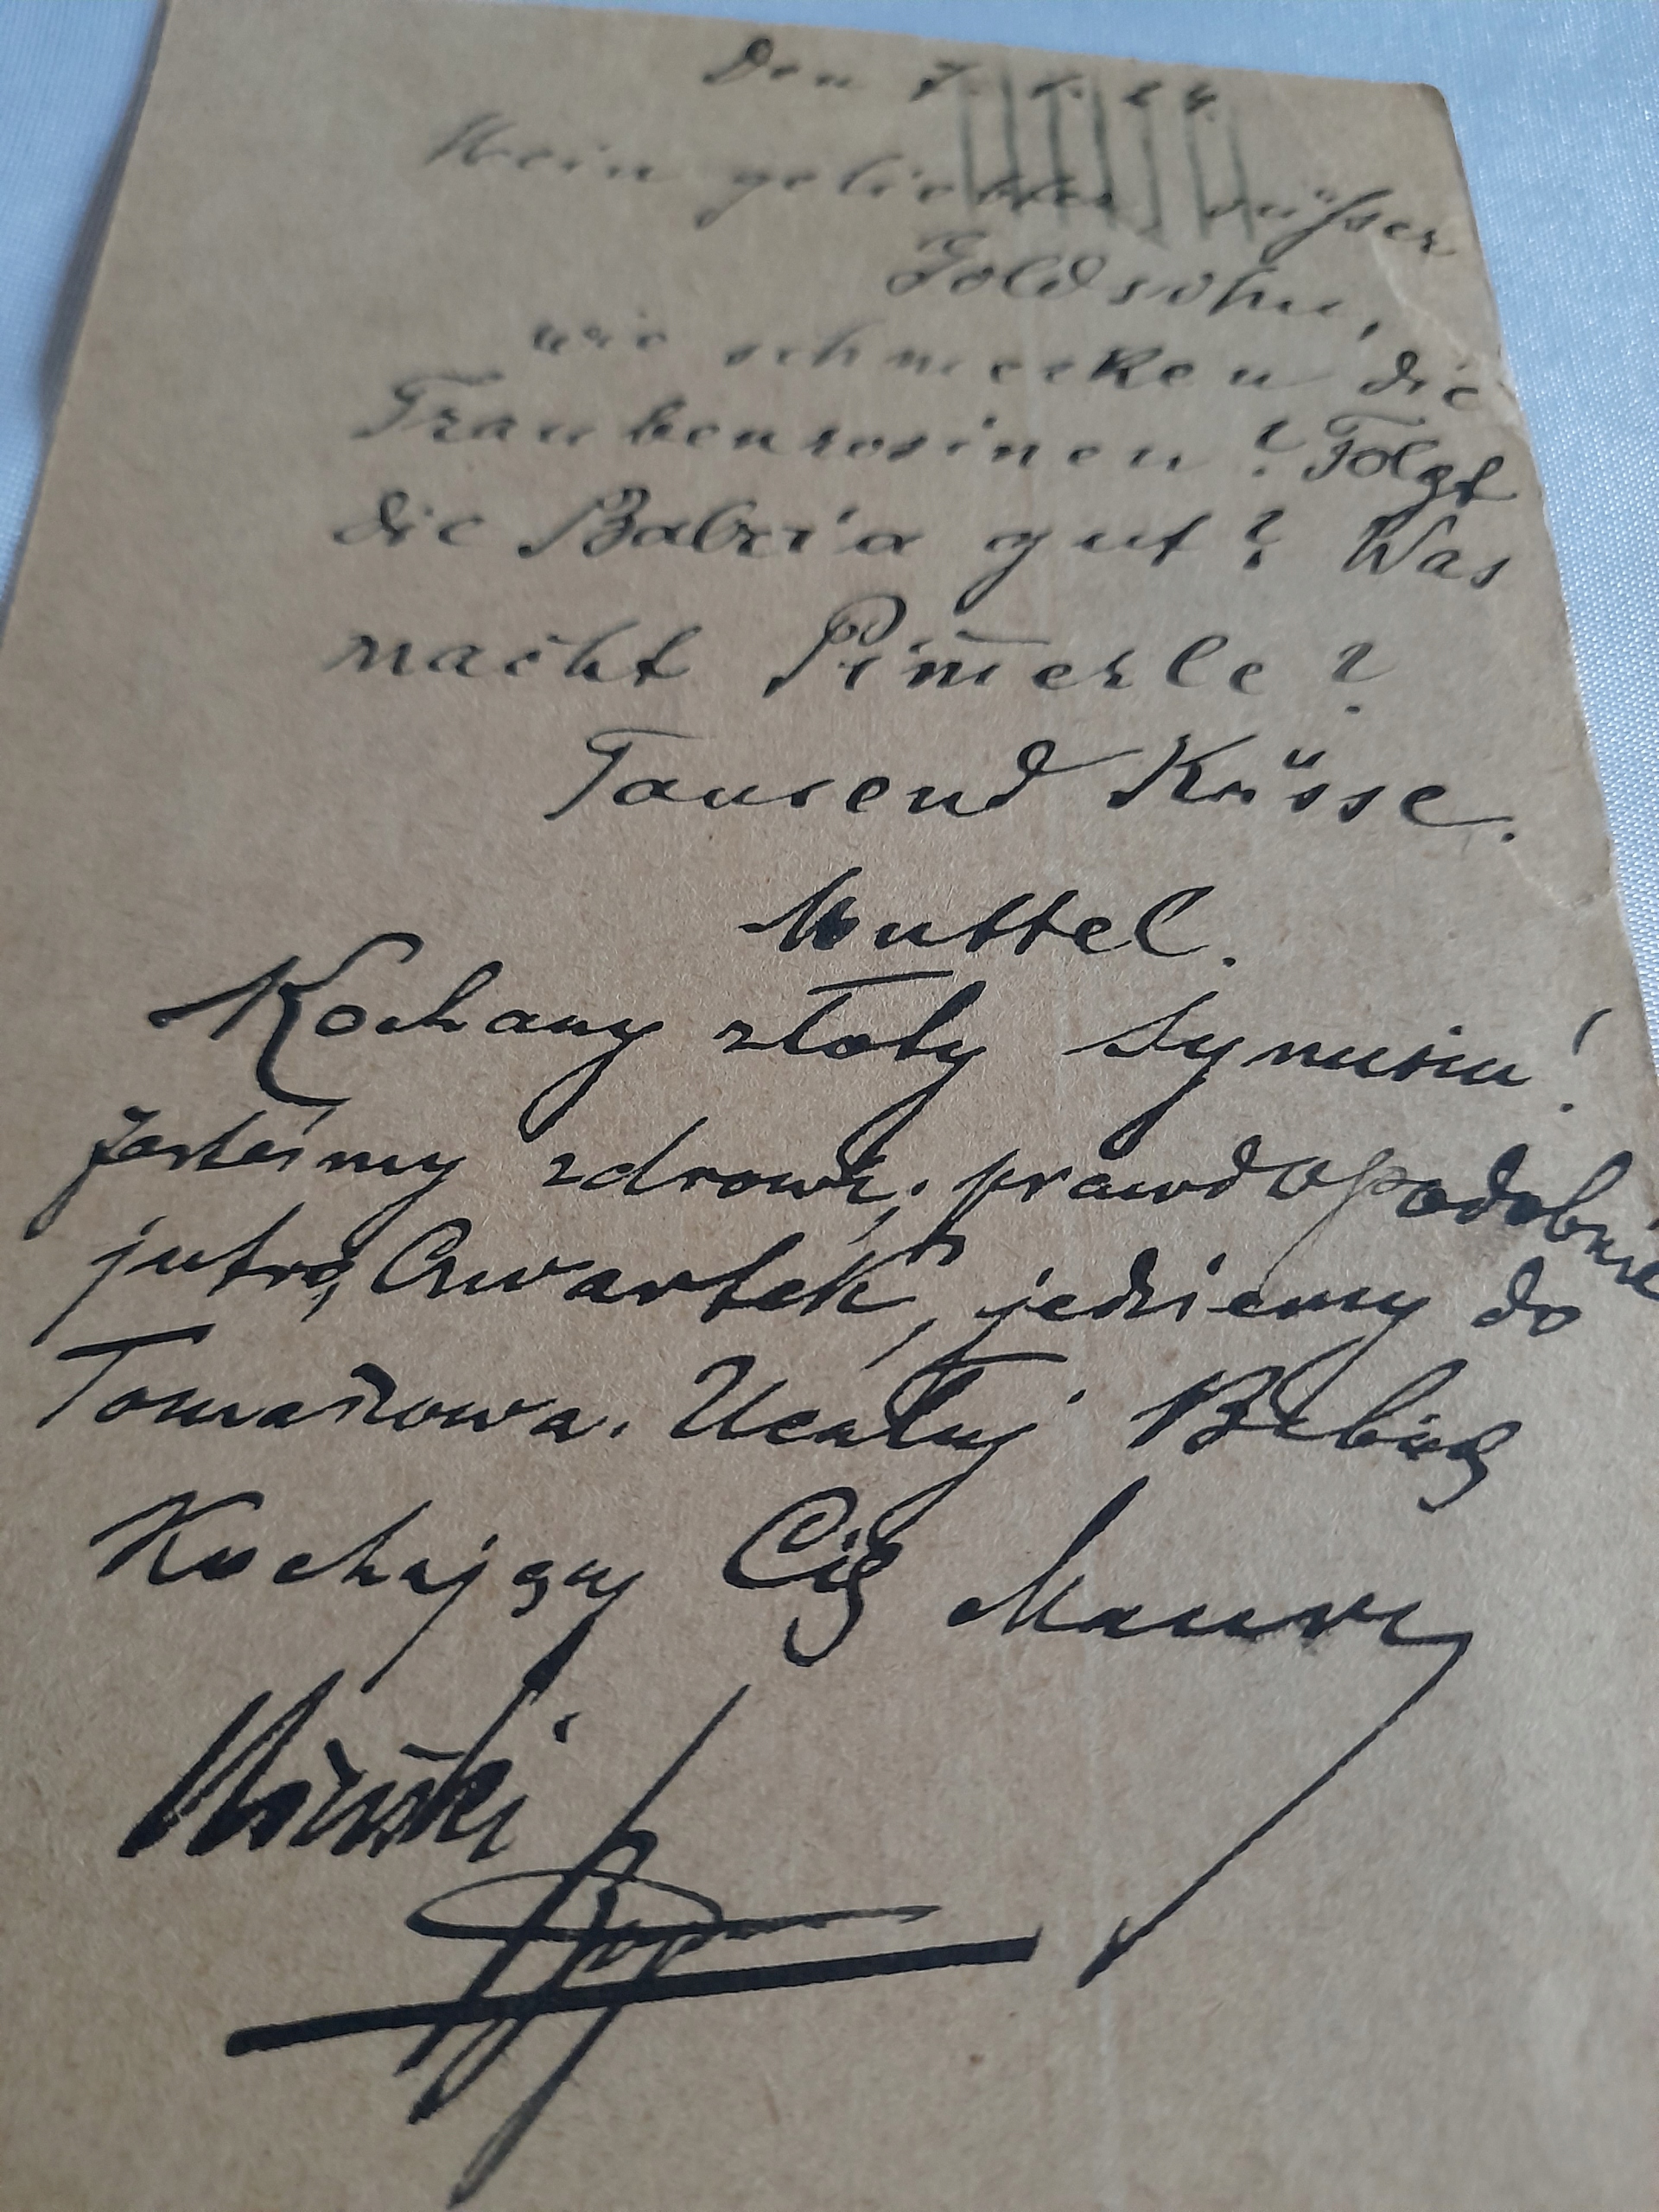 Den 7.
Mein geliebter süsser
Goldsohn,
wie schmecken die
Traubenrosinen? Folgt
die Babcia gut? Was
macht Pimerle?
Tausend Küsse.
Muttel.
Kochany złoty Synusiu!
Jesteśmy zdrowi; prawdopodobnie
jutro, Czwartek, jedziemy do
Tomaszowa. Ucałuj Babcię
Kochający Cię